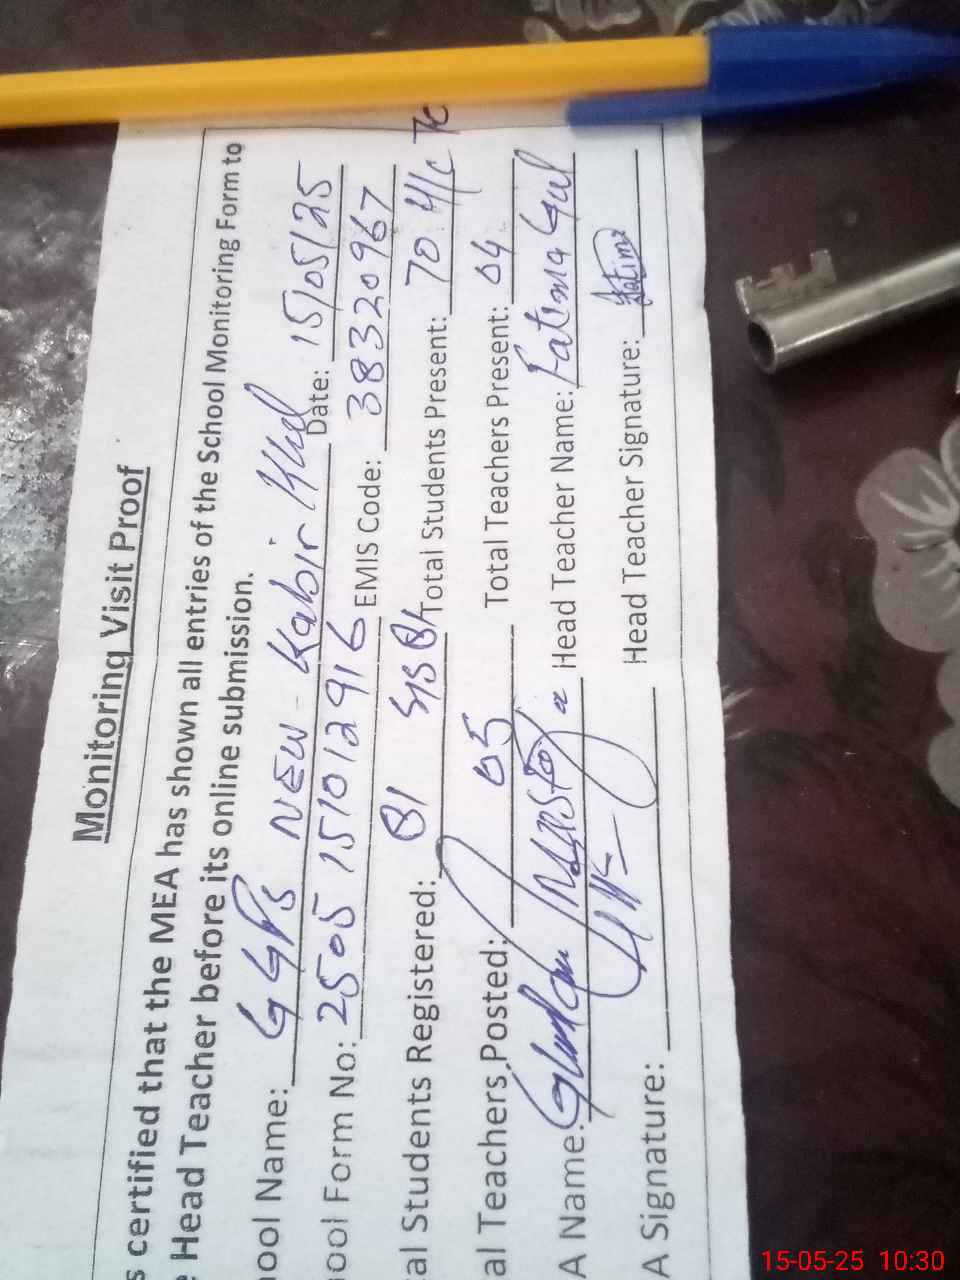 Monitoring Visit Proof
s certified that the MEA has shown all entries of the School Monitoring Form to
e Head Teacher before its online submission.
hool Name: GGPS NEW - Kabir Khel Date: 15/05/25
hool Form No: 2505151012916 EMIS Code: 38320967
tal Students Registered: 81 Total Students Present: 70 H/c Tc
al Teachers Posted: 05 Total Teachers Present: 04
A Name: Ghulam Mustafa Head Teacher Name: Fatima Gul
A Signature: Head Teacher Signature: Fatima
15-05-25 10:30